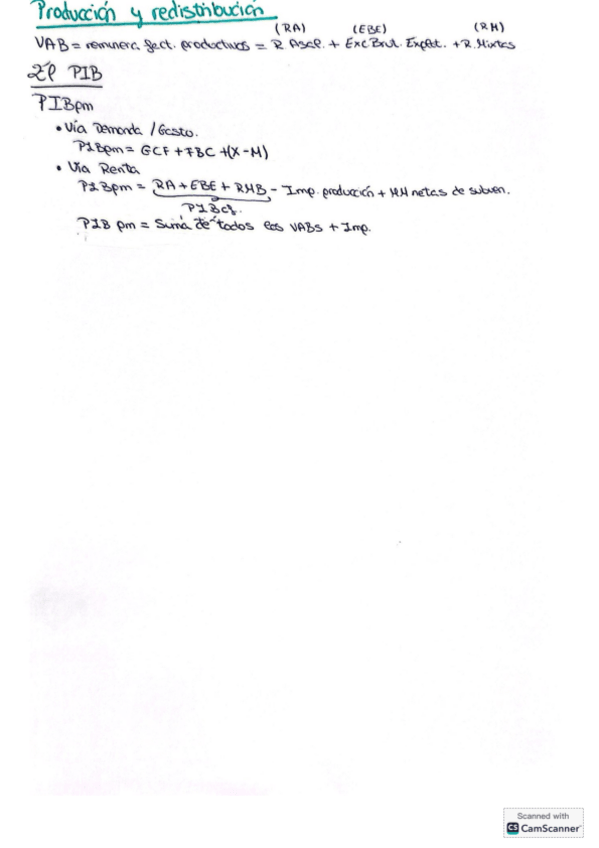 Producción y redistribución
(RA) (EBE) (RM)
VAB = remunera. fact. productivos = R Asal. + Exc Brut. Explot. + R. Mixtas
El PIB
PIBpm
• Vía Demanda / Gasto.
PIBpm = GCF + FBC + (X - M)
• Vía Renta
PIBpm = RA + EBE + RMB - Imp. producción + MM netas de subven.
PIBcf.
PIB pm = Suma de todos los VABs + Imp.
Scanned with
CS CamScanner